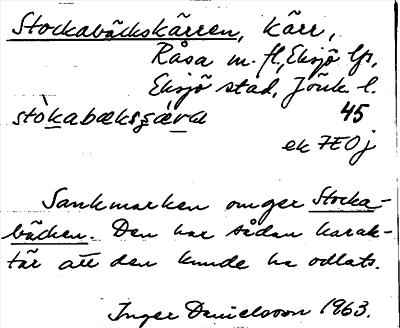 Stockabäckskärren, kärr,
Råsa m. fl, Eksjö lfs,
Eksjö stad, Jönk l.
stòkabæksʒæ̀rɑ 45
ek 7E0j
Sankmarken omger Stocka-
bäcken. Den har sådan karak-
tär att den kunde ha odlats.
Inger Danielsson 1963.